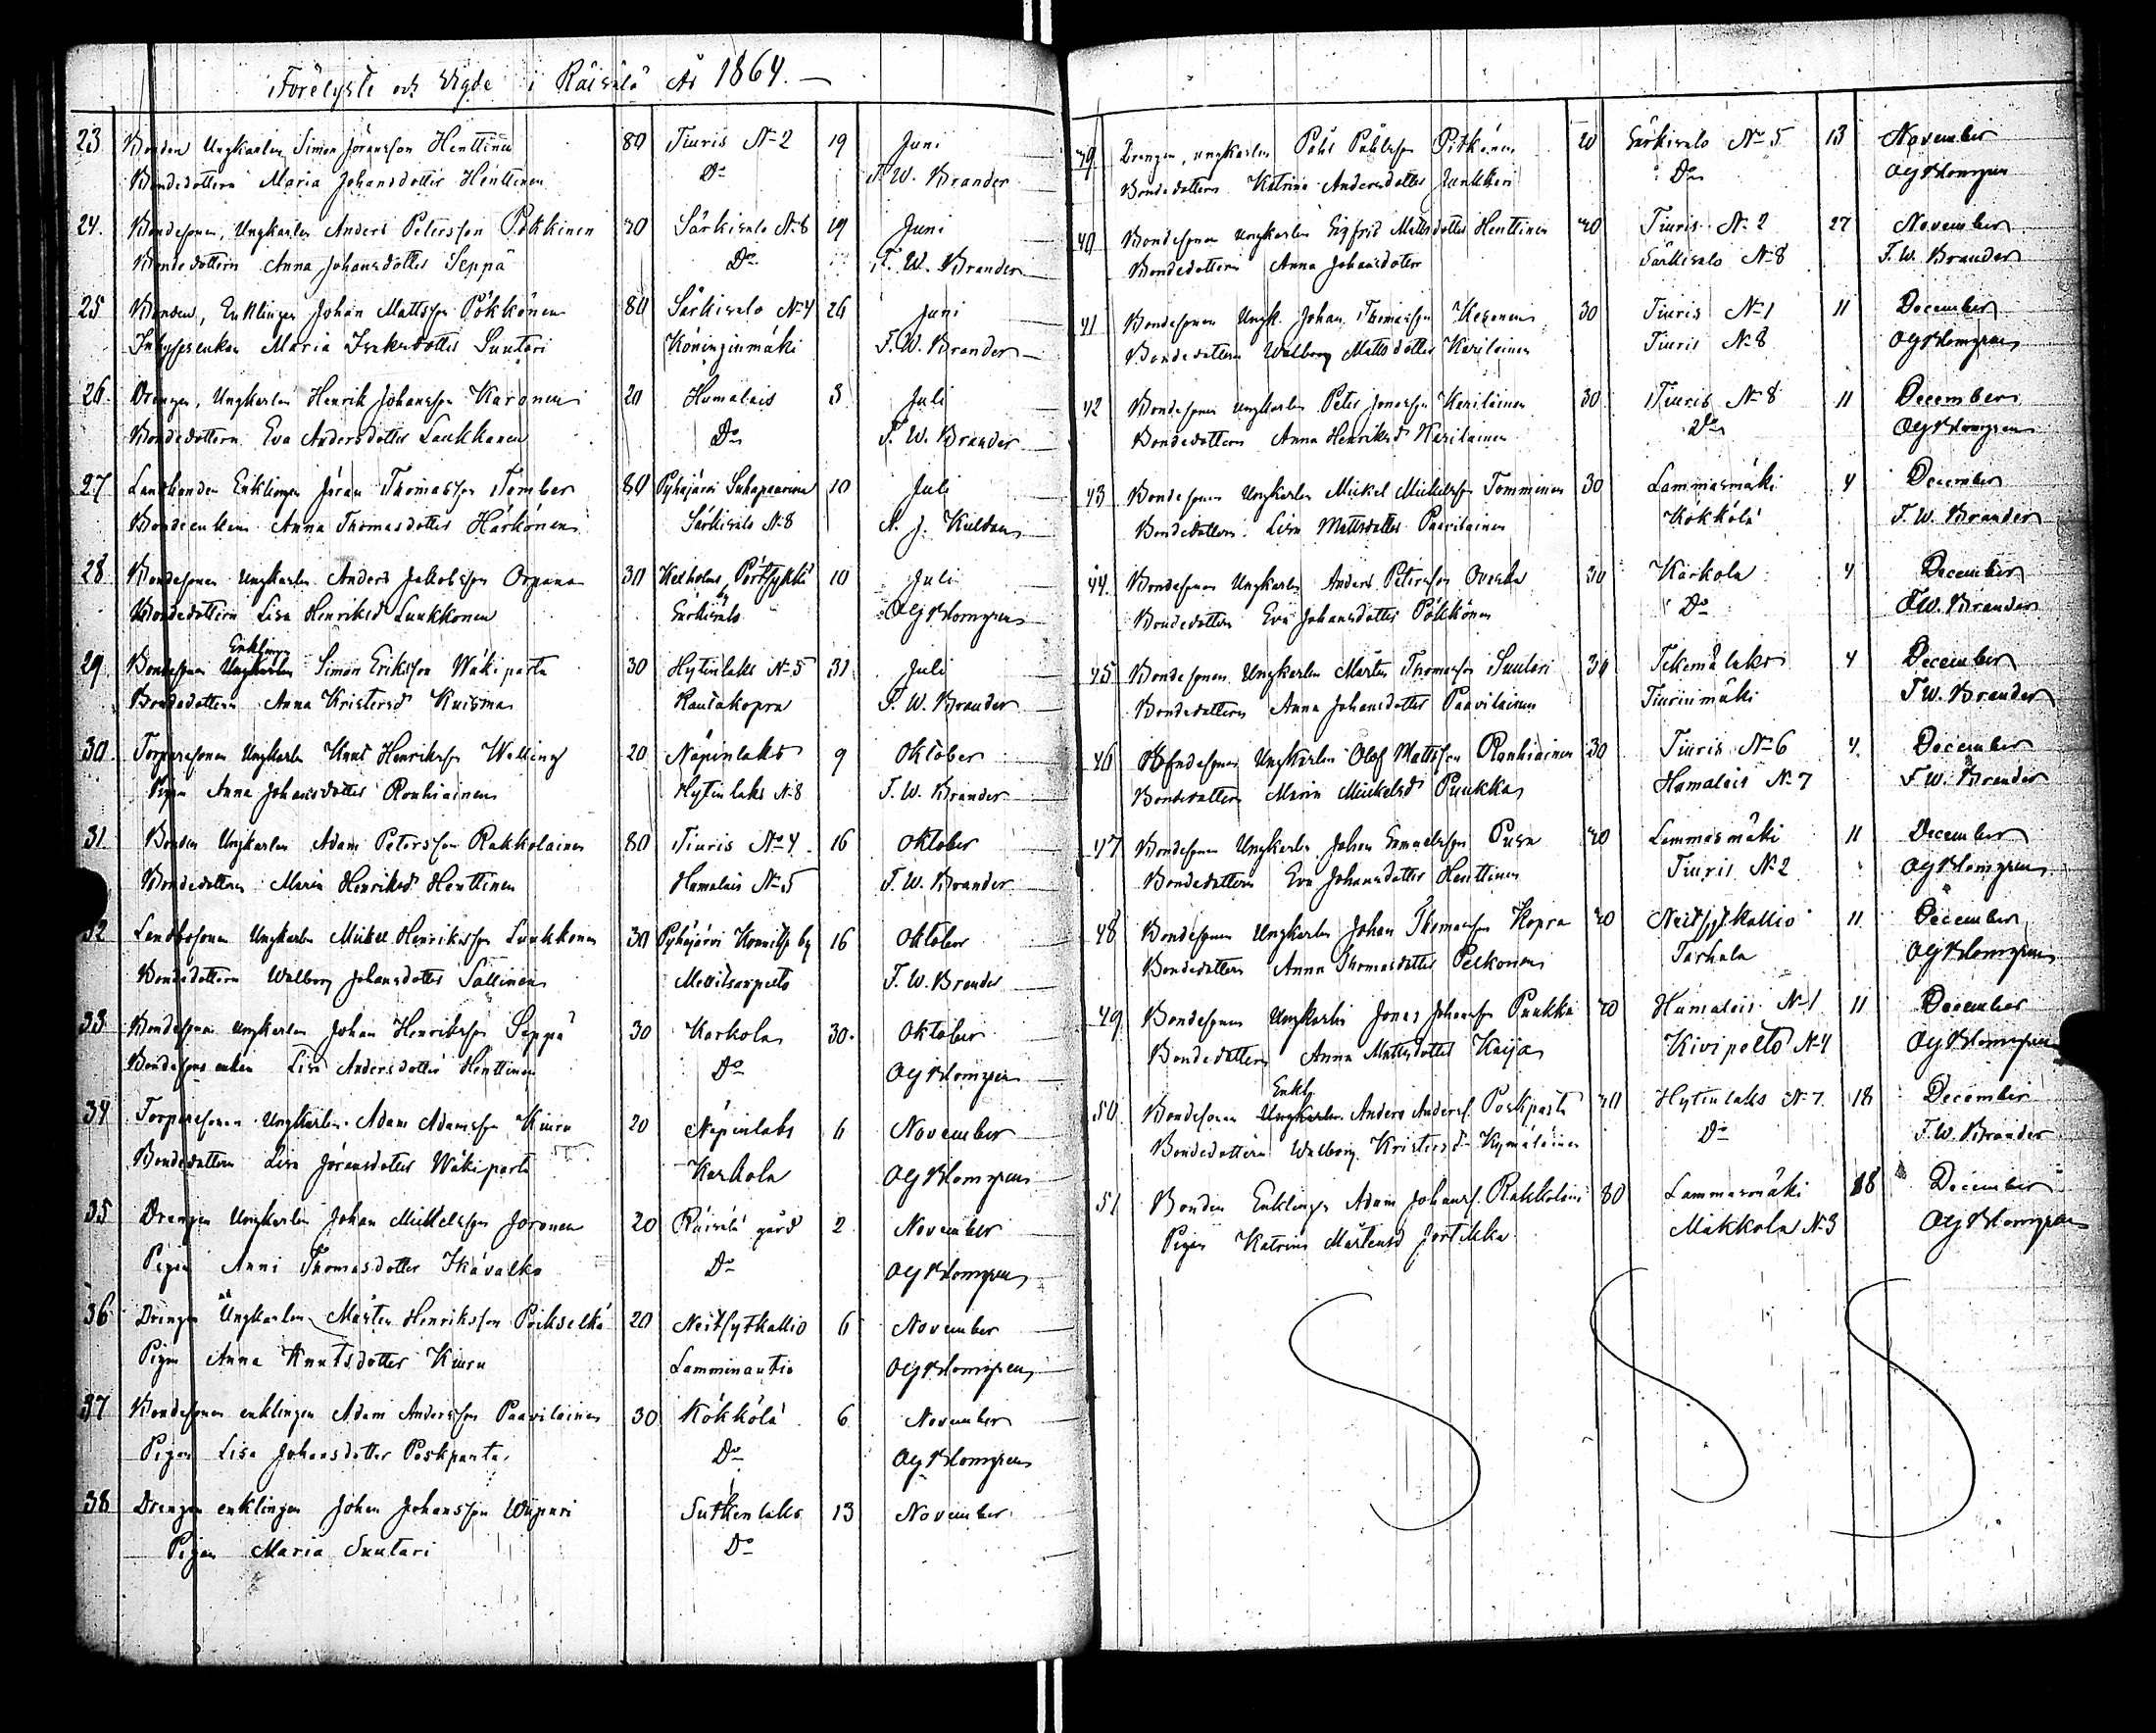 Förelyste och Vigde i Räisälä År 1864. —
23 Bonden Ungkarlen Simon Jöransson Henttinen 80 Tiuris No 2 19 Juni
Bondedottern Maria Johansdotter Henttinen Do F. W. Brander
24. Bondesonen, Ungkarlen Anders Petersson Pökkinen 30 Särkisalo No 8 19 Juni
Bondedottern Anna Johansdotter Seppä Do F. W. Brander
25 Bonden, Enklingen Johan Mattsson Pökkönen 80 Särkisalo No 4 26 Juni
Maria Isaksdotter Suutari Köninginmäki F. W. Brander
26. Drengen, Ungkarlen Henrik Johansson Karonen 20 Humalais 3 Juli
Bondedottern Eva Andersdotter Laukkanen Do F. W. Brander
27 Landbonden Enklingen Jöran Thomasson Tomber 80 Pyhäjärvi 10 Juli
Bondeenkan Anna Thomasdotter Härkönen Särkisalo No 8
28 Bondesonen Ungkarlen Anders Jakobsson Orpana 30 Kexholms, 10 Juli
Bondedottern Lisa Henriksd Luukkonen Särkisalo Blomgren
29. Bondesonen Ungkarlen Enklingen Simon Eriksson Wäkiparta 30 Hytinlaks No 5 31 Juli
Bondedottern Anna Kristersd Kuisma Rautakopra F. W. Brander
30. Torparesonen Ungkarlen Knut Henriksson Welling 20 Näpinlaks 9 Oktober
Pigan Anna Johansdotter Ronhiainen Hytinlaks No 8 F. W. Brander
31 Bonden Ungkarlen Adam Petersson Rakkolainen 80 Tiuris No 4 16 Oktober
Bondedottern Maria Henriksd Henttinen Humalais No 5 F. W. Brander
32 Landbosonen Ungkarlen Mickel Henriksson Luukkonen 30 Pyhäjärvi Konnitsa by 16 Oktober
Bondedottern Walborg Johansdotter Sallinen F. W. Brander
33 Bondesonen Ungkarlen Johan Henriksson Seppä 30 Karkola 30. Oktober
Bondesons enkan Lisa Andersdotter Henttinen Do Blomgren
34 Torparesonen Ungkarlen Adam Adamsson Kiuru 20 Näpinlaks 6 November
Bondedottern Lisa Jöransdotter Wäkiparta Karkola Blomgren
35 Drengen Ungkarlen Johan Mickelsson Joronen 20 Räisälä gård 2 November
Pigan Anni Thomasdotter Ikävalko Do Blomgren
36 Drengen Ungkarlen Mårten Henriksson Poikselkä 20 Neitsytkallio 6 November
Pigan Anna Knutsdotter Kiuru Lamminautio Blomgren
37 Bondesonen enklingen Adam Andersson Paavilainen 30 Kökkölä 6 November
Pigan Lisa Johansdotter Poskparta Do Blomgren
38 Drengen enklingen Johan Johansson Wiipuri 20 Sutkenlaks 13 November
Pigan Maria Suutari Do
39 Drengen, ungkarlen Påhl Påhlsson Pitkänen 20 Särkisalo No 5 13 November
Bondedottern Katrina Andersdotter Junkkari Do Blomgren
40 Bondesonen Ungkarlen Sigfrid Mattsdotter Henttinen 30 Tiuris No 2 27 November
Bondedottern Anna Johansdotter Särkisalo No 8 F. W. Brander
41 Bondesonen Ungk. Johan Thomasson Kesonen 30 Tiuris No 1 11 December
Bondedottern Walborg Mattsdotter Karilainen Tiuris No 8 Blomgren
42 Bondesonen Ungkarlen Peter Jonasson Karilainen 30 Tiuris No 8 11 December
Bondedottern Anna Henriksd Karilainen Do Blomgren
43 Bondesonen Ungkarlen Mickel Mickelsson Tomminen 30 Lammasmäki 4 December
Bondedottern Lisa Mattsdotter Paavilainen Kökkölä F. W. Brander
44. Bondesonen Ungkarlen Anders Petersson Ovaska 30 Karkola 4 December
Bondedottern Eva Johansdotter Pökkönen Do F. W. Brander
45 Bondesonen Ungkarlen Mårten Thomasson Suutari 30 4 December
Bondedottern Anna Johansdotter Paavilainen Tiurinmäki F. W. Brander
46 Bondesonen Ungkarlen Olof Mattsson Ronhiainen 30 Tiuris No 6 4. December
Bondedottern Maria Mickelsd Puukka Humalais No 7 F. W. Brander
47 Bondesonen Ungkarlen Johan Samuelsson Pusa 30 Lammasmäki 11 December
Bondedottern Eva Johansdotter Henttinen Tiuris No 2 Blomgren
48 Bondesonen Ungkarlen Johan Thomasson Kopra 30 Neitsytkallio 11 December
Bondedottern Anna Thomasdotter Pelkonen Tarhala Blomgren
49 Bondesonen Ungkarlen Jonas Johansson Puukka 30 Humalais No 1 11 December
Bondedottern Anna Mattsdotter Kaija Kivipelto No 4 Blomgren
50. Bondesonen Ungkarlen Enkl. Anders Anderss. Poskparta 30 Hytinlaks No 7. 18 December
Bondedottern Walborg Kristersd Kymäläinen Do F. W. Brander
51 Bonden Enklingen Adam Johanss. Rakkolainen 80 Lammasmäki 18 December
Pigan Katrina Mårtensd Jortikka Makkola No 3 Blomgren